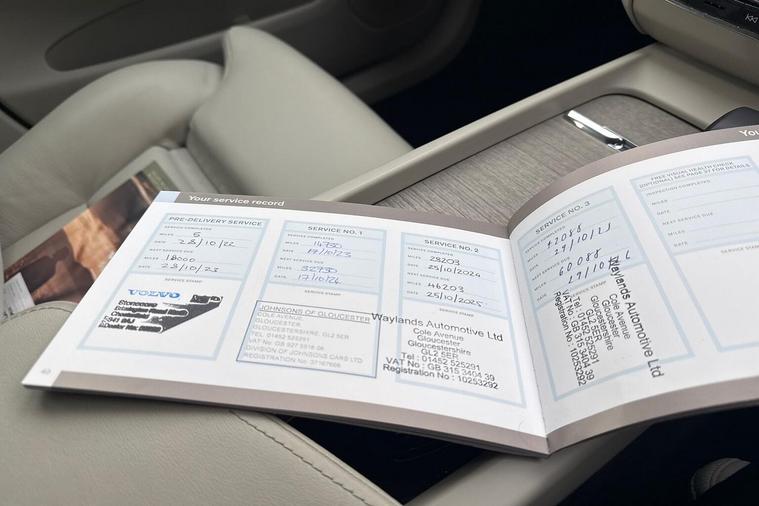 Your service record
You
PRE-DELIVERY SERVICE
SERVICE COMPLETED
MILES 5
DATE 28/10/22
NEXT SERVICE DUE
MILES 18000
DATE 28/10/23
SERVICE STAMP
VOLVO
SERVICE NO. 1
SERVICE COMPLETED
MILES 14730
DATE 17/10/23
NEXT SERVICE DUE
MILES 32730
DATE 17/10/24
SERVICE STAMP
JOHNSONS OF GLOUCESTER
COLE AVENUE
GLOUCESTER
GLOUCESTERSHIRE, GL2 5ER
TEL: 01452 525291
DIVISION OF JOHNSONS CARS LTD
SERVICE NO. 2
SERVICE COMPLETED
MILES 28203
DATE 25/10/2024
NEXT SERVICE DUE
MILES 46203
DATE 25/10/2025
SERVICE STAMP
Waylands Automotive Ltd
Cole Avenue
Gloucester
Gloucestershire
GL2 5ER
Tel : 01452 525291
VAT No : GB 315 3404 39
Registration No : 10253292
SERVICE NO. 3
SERVICE COMPLETED
MILES 42088
DATE
NEXT SERVICE DUE
MILES 60088
DATE
Waylands Automotive Ltd
Cole Avenue
Gloucester
Gloucestershire
GL2 5ER
Tel : 01452 525291
VAT No : GB 315 3404 39
Registration No : 10253292
FREE VISUAL HEALTH CHECK
(OPTIONAL) SEE PAGE 37 FOR DETAILS
INSPECTION COMPLETED
MILES
DATE
NEXT SERVICE DUE
MILES
DATE
SERVICE STAMP